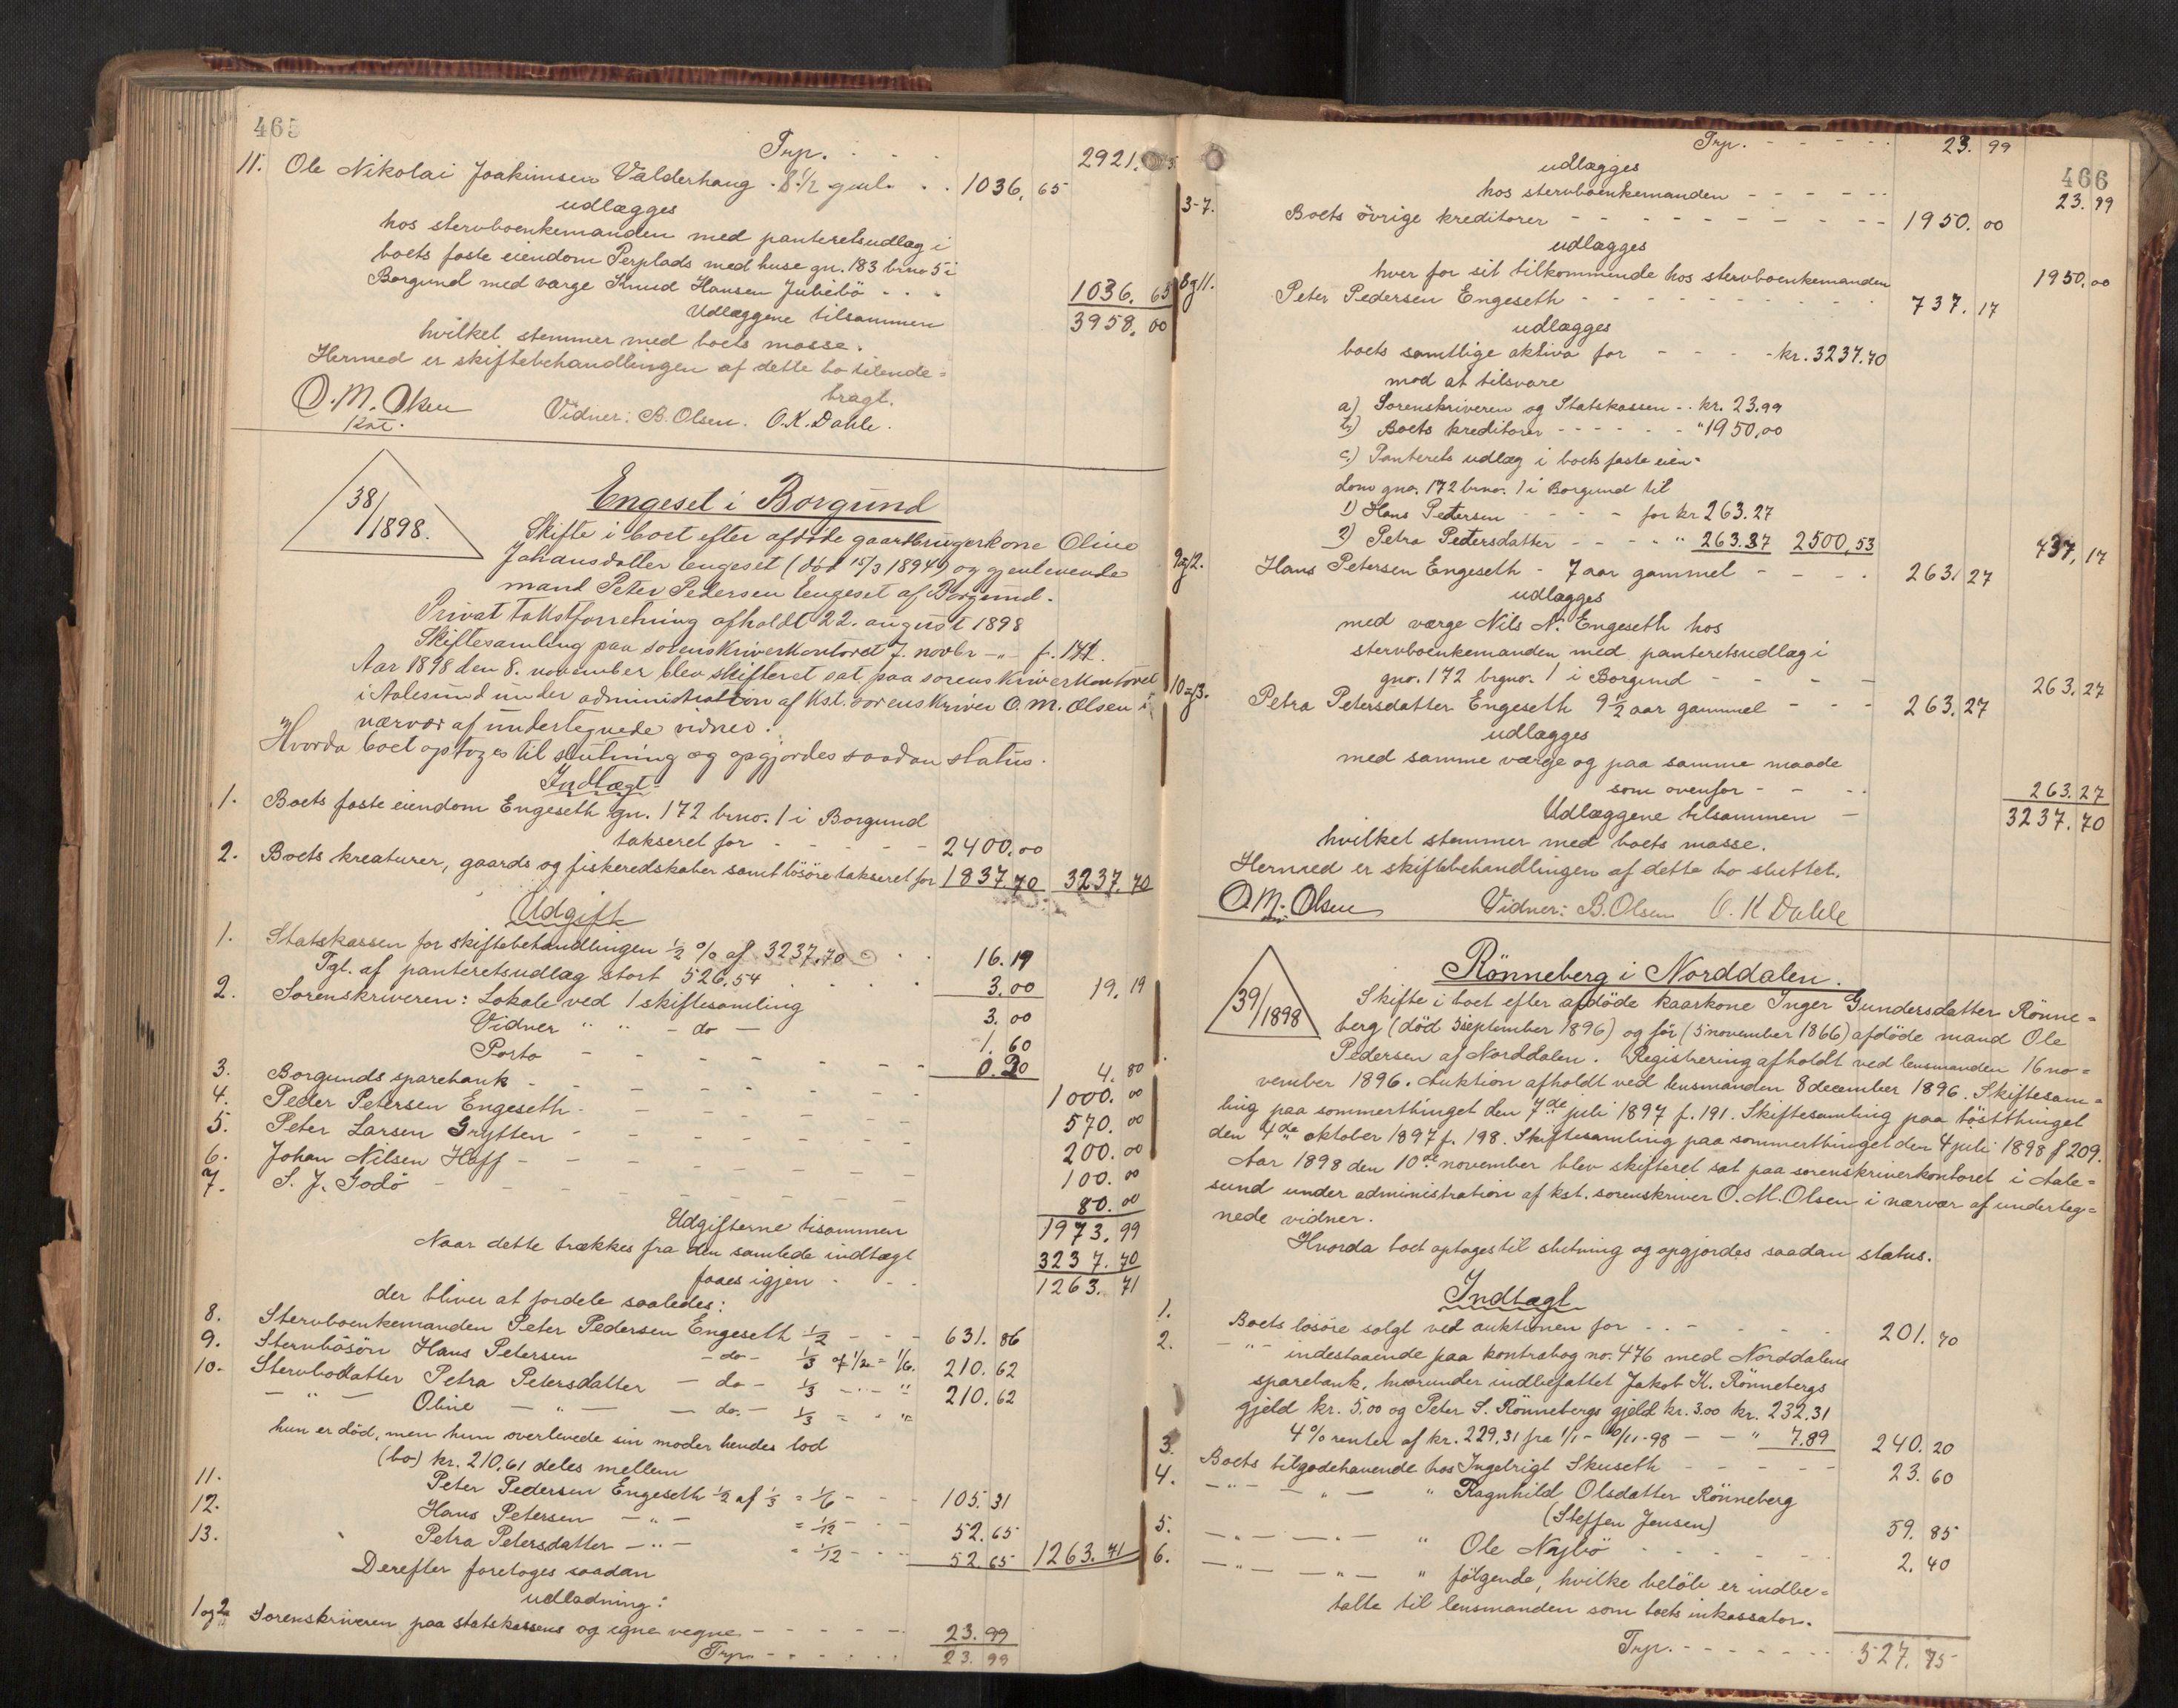 465
Trp. . . . 2921.35
11. Ole Nikolai Joakimsen Valderhaug 8 1/2 gml. . . 1036,65
udlægges
hos stervboenkemanden med panteretsudlæg i
boets faste eiendom Perplads med huse gn. 183 brno 5 i
Borgund med værge Knud Hansen Juliebö . . . 1036.65
Udlæggene tilsammen 3958,00
hvilket stemmer med boets masse.
Hermed er skiftebehandlingen af dette bo tilende=
bragt.
O. M. Olsen
kst.
Vidner: B. Olsen. O. K. Dahle.
38/1898.
Engeset i Borgund
Skifte i boet efter afdöde gaardbrugerkone Oline
Johansdatter Engeset (död 15/3 1894) og gjenlevende
mand Peter Pedersen Engeset af Borgund.
Privat takstforretning afholdt 22. august 1898
Skiftesamling paa sorenskriverkontoret 7. novbr -"- f. 141.
Aar 1898 den 8. november blev skifteret sat paa sorenskriverkontoret
i Aalesund under administration af kst. sorenskriver O. M. Olsen i
nærvær af undertegnede vidner.
Hvorda boet optoges til slutning og opgjordes saadan status.
Indtægt
1. Boets faste eiendom Engeseth gn. 172 brno. 1 i Borgund
takseret for - - - - - 2400,00
2. Boets kreaturer, gaards og fiskeredskaber samt lösöre takseret for 1837.70 3237.70
Udgift
1. Statskassen for skiftebehandlingen 1/2 % af 3237,70 . . 16.19
Tgl. af panteretsudlæg stort 526,54 . . . . 3.00 19.19
2. Sorenskriveren: Lokale ved 1 skiftesamling 3.00
Vidner " " - do - 1.60
Porto - - - - - - - 0.20 4.80
3. Borgunds sparebank - - - - - - - 1000.00
4. Peder Petersen Engeseth - - - - - - 570.00
5. Peter Larsen Grytten - - - - - - 200.00
6. Johan Nilsen Hoff - - - - - - 100.00
7. S. J. Godö - - - - - - - 80.00
Udgifterne tisammen 1973.99
Naar dette trækkes fra den samlede indtægt 3237.70
faaes igjen - - - 1263.71
der bliver at fordele saaledes:
8. Stervboenkemanden Peter Pedersen Engeseth 1/2 - - - 631.86
9. Stervbösön Hans Petersen - do - 1/3 af 1/2 = 1/6. 210.62
10. Stervbodatter Petra Petersdatter - do - 1/3 - - " 210.62
- " - Oline - " - - do. - 1/3 = - "
hun er död, men hun overlevede sin moder hendes lod
(bo) kr. 210,61 deles mellem
11. Peter Pedersen Engeseth 1/2 af 1/3 = 1/6 - - - 105.31
12. Hans Petersen - " - = 1/12 - - - 52.65
13. Petra Petersdatter - " - = 1/12 - - - 52.65 1263.71
Derefter foretoges saadan
udlodning:
1 og 2. Sorenskriveren paa statskassens og egne vegne - - - - - 23.99
Trp. - - - - - 23.99
466
Trp. - - - - - 23.99
udlægges
hos stervboenkemanden - - - - - - 23.99
3-7. Boets övrige kreditorer - - - - - - - - - 1950.00
udlægges
hver for sit tilkommende hos stervboenkemanden 1950,00
8 og 11. Peter Pedersen Engeseth - - - - - - - - - 737.17
udlægges
boets samtlige aktiva for - - - - kr. 3237.70
mod at tilsvare
a) Sorenskriveren og Statskassen - . kr. 23.99
b) Boets kreditorer - - - - - - " 1950,00
c) Panterets udlæg i boets faste eien=
dom gno. 172 brno. 1 i Borgund til
1) Hans Petersen - - - - for kr 263.27
2) Petra Petersdatter - - - - " 263.27 2500,53 737,17
9 og 12. Hans Petersen Engeseth - 7 aar gammel - - - . 263.27
udlægges
med værge Nils N. Engeseth hos
stervboenkemanden med panteretsudlæg i
gno. 172 brgno. 1 i Borgund - - - - - 263.27
10 og 13. Petra Petersdatter Engeseth 9 1/2 aar gammel - - - 263.27
udlægges
med samme værge og paa samme maade
som ovenfor - - - . 263.27
Udlæggene tilsammen - 3237.70
hvilket stemmer med boets masse.
Hermed er skiftebehandlingen af dette bo sluttet.
O. M. Olsen Vidner: B. Olsen O. K Dahle
39/1898
Rönneberg i Norddalen.
Skifte i boet efter afdöde kaarkone Inger Gundersdatter Rönne=
berg (död 3 september 1896) og för (5 november 1866) afdöde mand Ole
Pedersen af Norddalen. Registrering afholdt ved lensmanden 16 no=
vember 1896. Auktion afholdt ved lensmanden 8 december 1896. Skiftesam=
ling paa sommerthinget den 7de juli 1897 f. 191. Skiftesamling paa höstthinget
den 4de oktober 1897 f. 198. Skiftesamling paa sommerthinget den 4 juli 1898 f 209.
Aar 1898 den 10de november blev skifteret sat paa sorenskriverkontoret i Aale=
sund under administration af kst. sorenskriver O. M. Olsen i nærvær af underteg=
nede vidner.
Hvorda boet optoges til slutning og opgjordes saadan status.
Indtægt
1. Boets lösöre solgt ved auktionen for - - - - - - 201.70
2. -"- indestaaende paa kontrabog no. 476 med Norddalens
sparebank, hvorunder indbefattet Jakob K. Rönnebergs
gjeld kr. 5.00 og Peter S. Rönnebergs gjeld kr. 3.00 kr. 232,31
4 % renter af kr. 229,31 fra 1/1 - 10/11-98 - - " 7.89 240.20
3. Boets tilgodehavende hos Ingebrigt Skuseth - - - - - 23.60
4. -"- - " - " Ragnhild Olsdatter Rönneberg
(Steffen Jensen) 59.85
5. -"- - " - " Ole Nysbö - - - - - - 2.40
6. -"- - " - " fölgende, hvilke belöb er indbe=
talte til lensmanden som boets inkassator.
Trp. - - - - - - 527.75